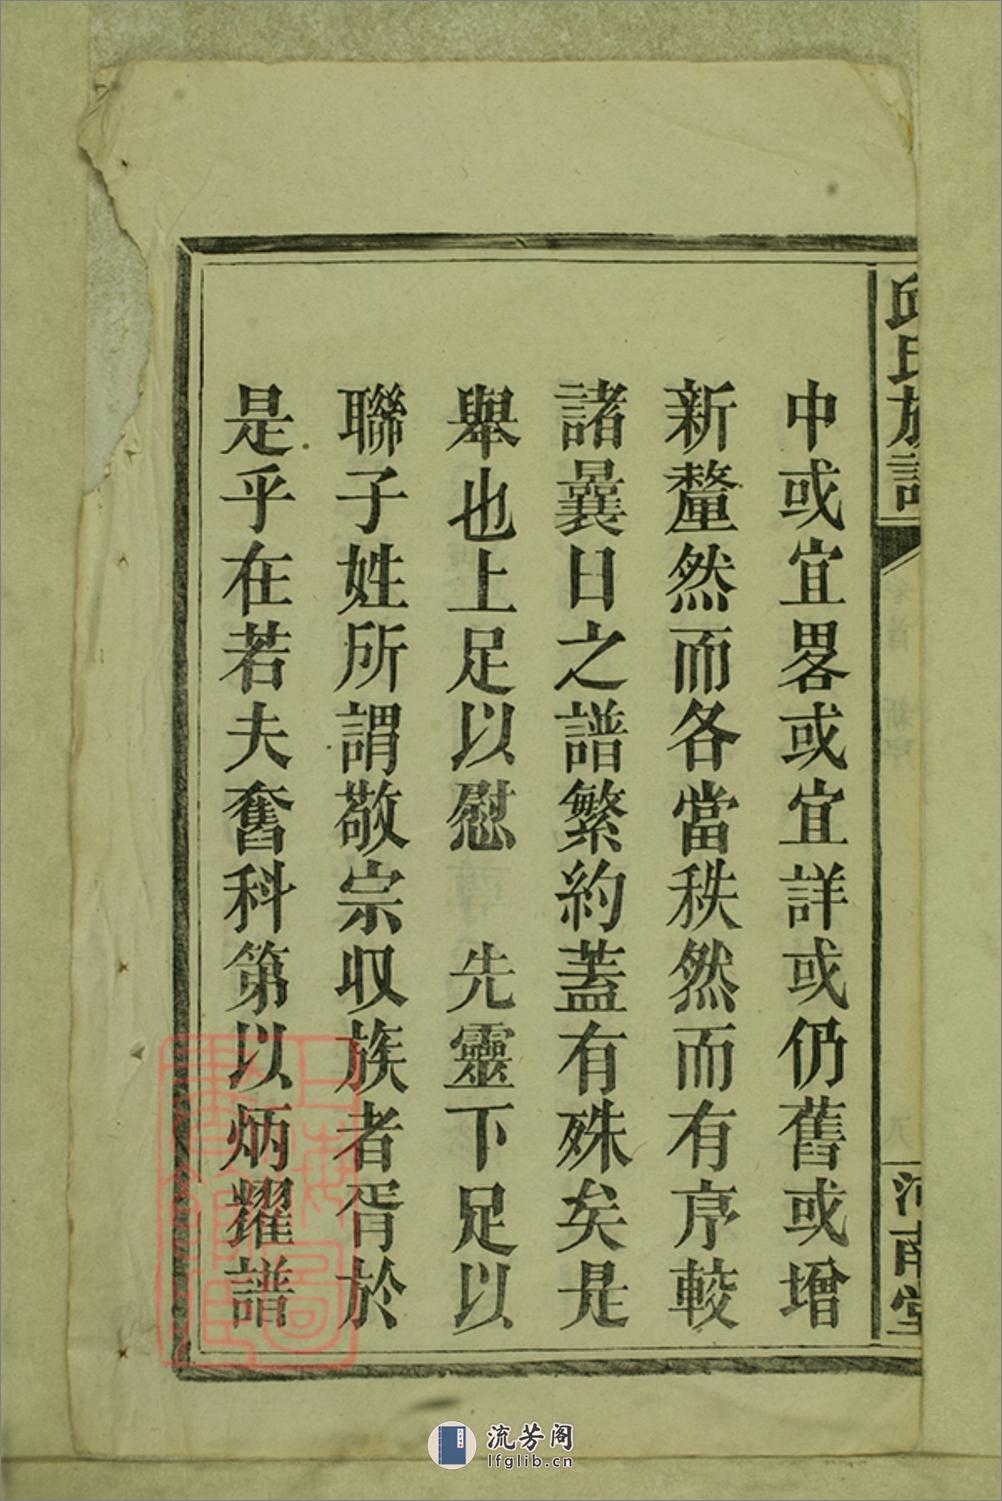 邱氏族譜
河南堂
中或宜畧或宜詳或仍舊或增
新釐然而各當秩然而有序較
諸曩日之譜繁約蓋有殊矣是
舉也上足以慰　先靈下足以
聯子姓所謂敬宗収族者胥於
是乎在若夫奮科第以炳耀譜
上海圖書館藏
流芳阁
lfglib.cn